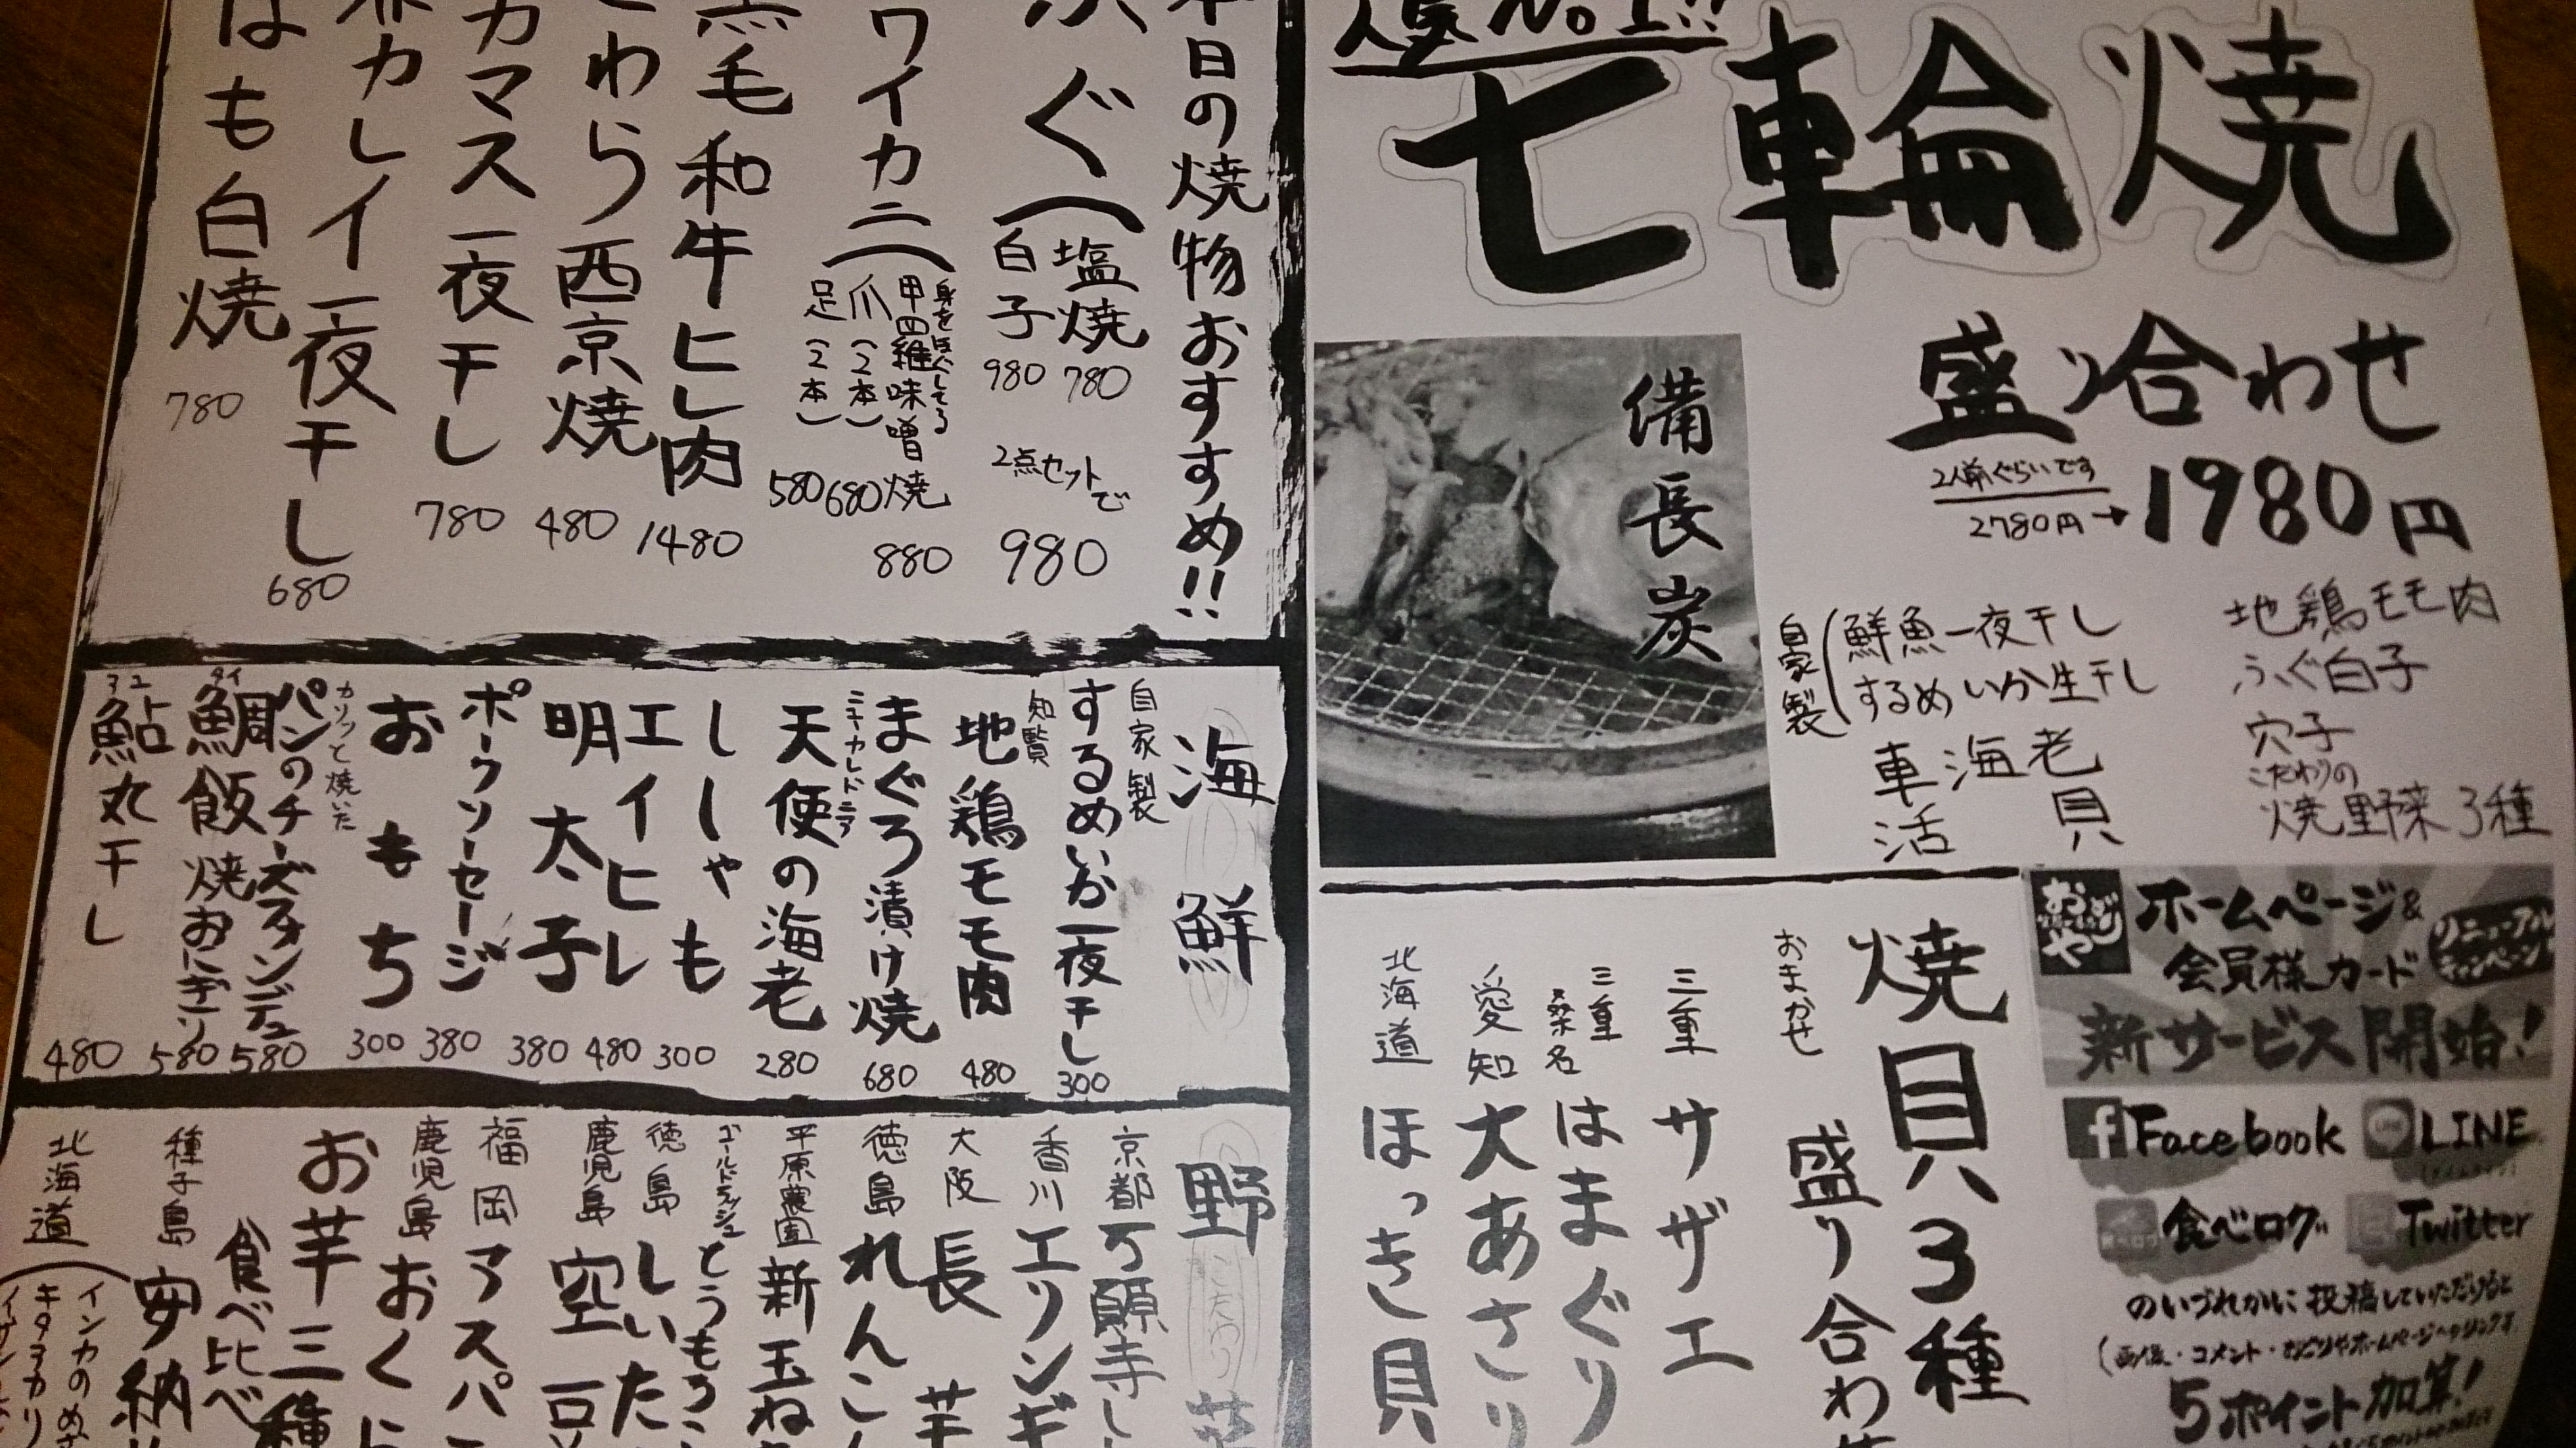 人気No.1!!
七輪焼
盛り合わせ
2人前ぐらいです
2780円→1980円
地鶏モモ肉
ふぐ白子
穴子
こだわりの
焼野菜3種
自家製
鮮魚一夜干し
するめいか生干し
車海老
活貝
備長炭
おどしや
ホームページ&
会員様カード
新サービス開始!
Facebook
LINE
食べログ
Twitter
のいづれかに投稿していただけると
5ポイント加算!
焼貝3種
おまかせ 盛り合わせ
三重 サザエ
三重 桑名 はまぐり
愛知 大あさり
北海道 ほっき貝
本日の焼物おすすめ!!
ふぐ
塩焼 780
白子 980
2点セットで 980
ワイカニ
身をほぐしてる
甲羅味噌焼 880
爪(2本) 680
足(2本) 580
黒毛和牛ヒレ肉 1480
さわら西京焼 480
カマス一夜干し 780
赤カレイ一夜干し 680
はも白焼 780
海鮮
自家製 するめいか一夜干し 300
知覧 地鶏モモ肉 480
まぐろ漬け焼 680
ニューカレドニア 天使の海老 280
ししゃも 300
エイヒレ 480
明太子 380
ポークソーセージ 380
おもち 300
カリッと焼いた
パンのチーズフォンデュ 580
鯛飯焼おにぎり 580
鮎丸干し 480
野菜
京都 万願寺し
香川 エリンギ
大阪 長芋
徳島 れんこん
平原農園 新玉ね
ゴールドラッシュ とうもろこ
徳島 しいた
鹿児島 空豆
福岡 アスパ
鹿児島 おく
お芋三種
食べ比べ
種子島 安納
北海道
インカのめざ
キタアカリ